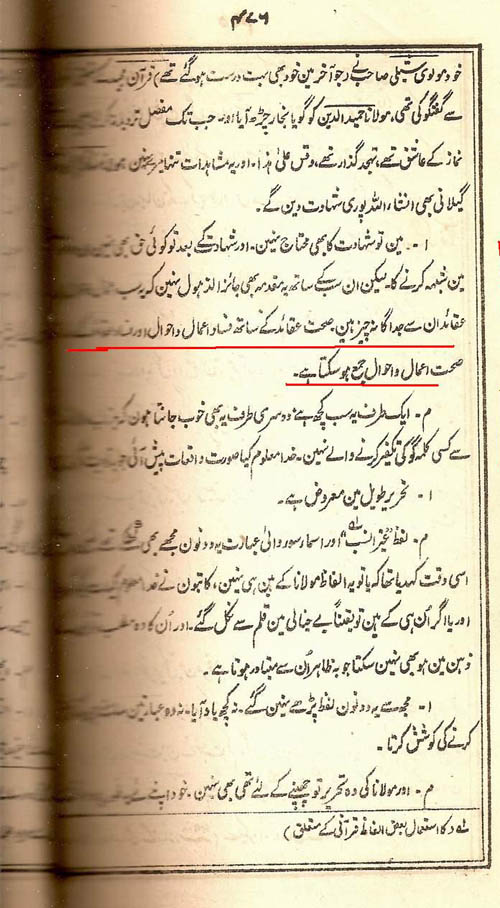 ۴۷۶
خود مولوی شبلی صاحب نے (جو آخر مین خود بھی بہت درست ہو گئے تھے) قرآن مجید
سے گفتگو کی تھی، مولانا حمید الدین کو گویا بخار چڑھ آیا اور جب تک مفصل تردید
نماز کے عاشق تھے، تہجد گذار تھے، وقس علیٰ ہذا۔ اور یہ مشاہدات تنہا میرے نہین
گیلانی بھی انشاء اللہ پوری شہادت دین گے۔
ا۔ مین تو شہادت کا بھی محتاج نہین۔ اور شہادت کے بعد تو کوئی حق بھی نہین
مین شبہہ کرنے کا۔ لیکن ان سب کے ساتھ یہ مقدمہ بھی جائز الذہول نہین کہ یہ سب
عقائد ان سے جداگانہ چیز ہین۔ صحت عقائد کے ساتھ فساد اعمال و احوال اور فساد
صحت اعمال و احوال جمع ہو سکتا ہے۔
م۔ ایک طرف یہ سب کچھ ہے؛ دوسری طرف یہ بھی خوب جانتا ہون کہ
سے کسی کلمہ گو کی تکفیر کرنے والے نہین۔ خدا معلوم کیا صورت واقعات پیش آئی
ا۔ تحریر طویل مین معروض ہے۔
م۔ لفظ اور اسمار سور والی عبارت یہ دونون مجھے بھی
اسی وقت کہدیا تھا کہ یا تو یہ الفاظ مولانا کے ہین ہی نہین، کاتبون نے
اور یا اگر اُن ہی کے ہین تو یقیناً بے خیالی مین قلم سے نکل گئے۔ اور اُن کا وہ مطلب
ذہن مین ہو بھی نہین سکتا جو بہ ظاہر اُن سے متبادر ہوتا ہے۔
ا۔ مجھ سے یہ دونون لفظ پڑھے نہین گئے۔ نہ کچھ یاد آیا۔ نہ وہ عبارتین
کرنے کی کوشش کرتا۔
م۔ اور مولانا کی وہ تحریر تو چھپنے کے لئے تھی بھی نہین۔ خود اپنے
لہ (کا استعمال بعض الفاظ قرآنی کے متعلق)